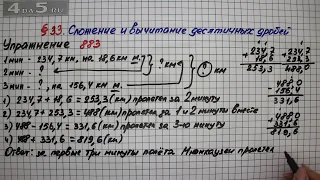 §33. Сложение и вычитание десятичных дробей
Упражнение 883
1 мин - 234,7 км, на 18,6 км м.
2 мин - ?
? км
3 мин - ?, на 156,4 км
1) 234,7 + 18,6 = 253,3 (км) пролетел за 2 минуту
2) 234,7 + 253,3 = 488 (км) пролетел за 1 и 2 минуты вместе
3) 488 - 156,4 = 331,6 (км) пролетел за 3-ю минуту
4) 488 + 331,6 = 819,6 (км)
Ответ: за первые три минуты полёта Мюнхаузен пролетел
+ 234,7
18,6
253,3
+ 234,7
253,3
488,0
- 488,0
156,4
331,6
+ 488,0
331,6
819,6